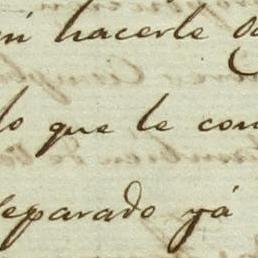 ni hacerle
lo que le con
separado yá